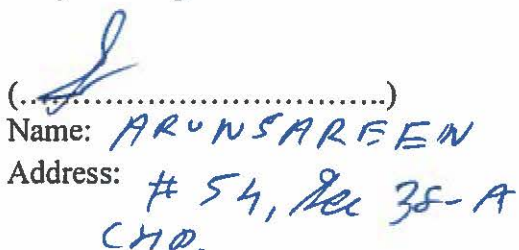 (....................................)
Name: ARUN SAREEN
Address: # 54, Sec 38-A
CHD.